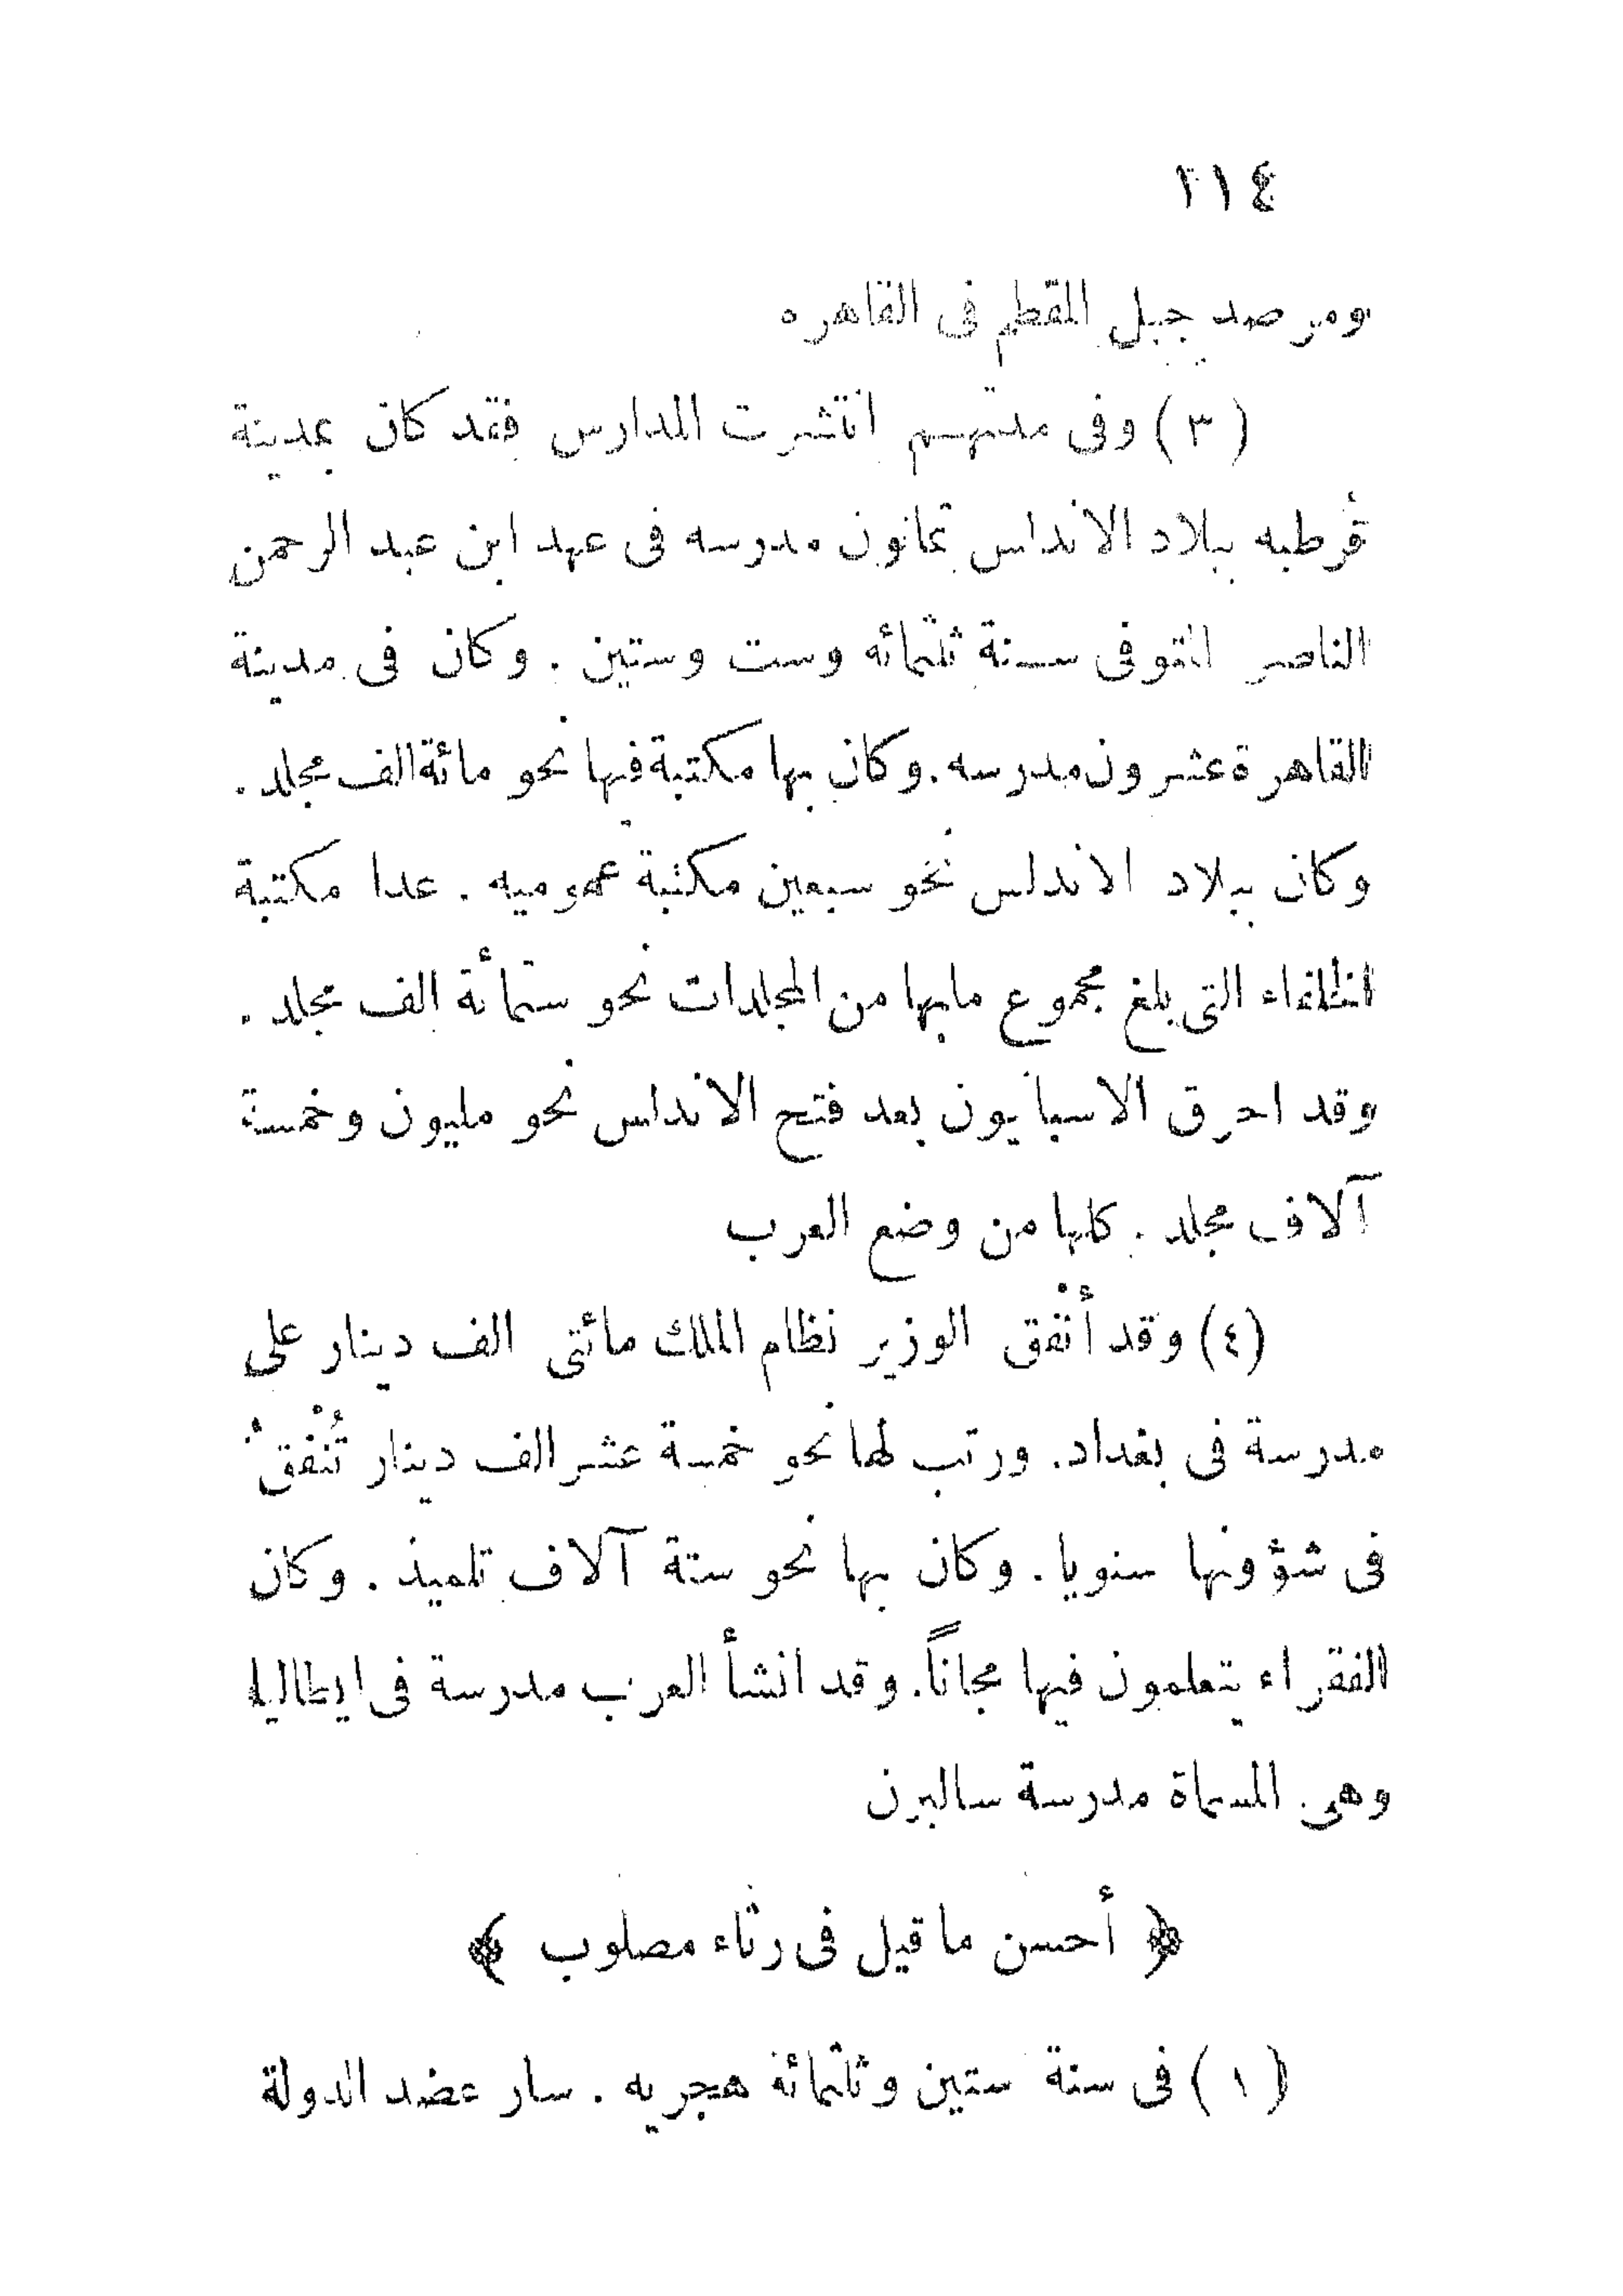 ٢١٤
ومرصد جبل المقطم فى القاهره
(٣) وفى مدتهم انتشرت المدارس فقد كان بمدينة
قرطبه ببلاد الاندلس ثمانون مدرسه فى عهد ابن عبد الرحمن
الناصر المتوفى سنة ثلثمائه وست وستين . وكان فى مدينة
القاهرة عشرون مدرسه . وكان بها مكتبة فيها نحو مائة الف مجلد .
وكان ببلاد الاندلس نحو سبعين مكتبة عموميه . عدا مكتبة
الخلفاء التى بلغ مجموع مابها من المجلدات نحو ستمائة الف مجلد .
وقد احرق الاسبانيون بعد فتح الاندلس نحو مليون وخمسة
آلاف مجلد . كلها من وضع العرب
(٤) وقد أنْفق الوزير نظام الملك مائتى الف دينار على
مدرسة فى بغداد . ورتب لها نحو خمسة عشر الف دينار تُنْفق
فى شؤونها سنويا . وكان بها نحو ستة آلاف تلميذ . وكان
الفقراء يتعلمون فيها مجاناً . وقد انشأ العرب مدرسة فى ايطاليا
وهى المسماة مدرسة ساليرن
﴿ أحسن ما قيل فى رثاء مصلوب ﴾
(١) فى سنة ستين وثلثمائة هجريه . سار عضد الدولة